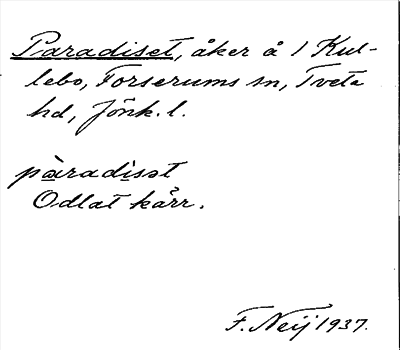 Paradiset, åker å 1 Kul-
lebo, Forserums sn, Tveta
hd, Jönk. l.
pàradisət
Odlat kärr.
F. Neij 1937.